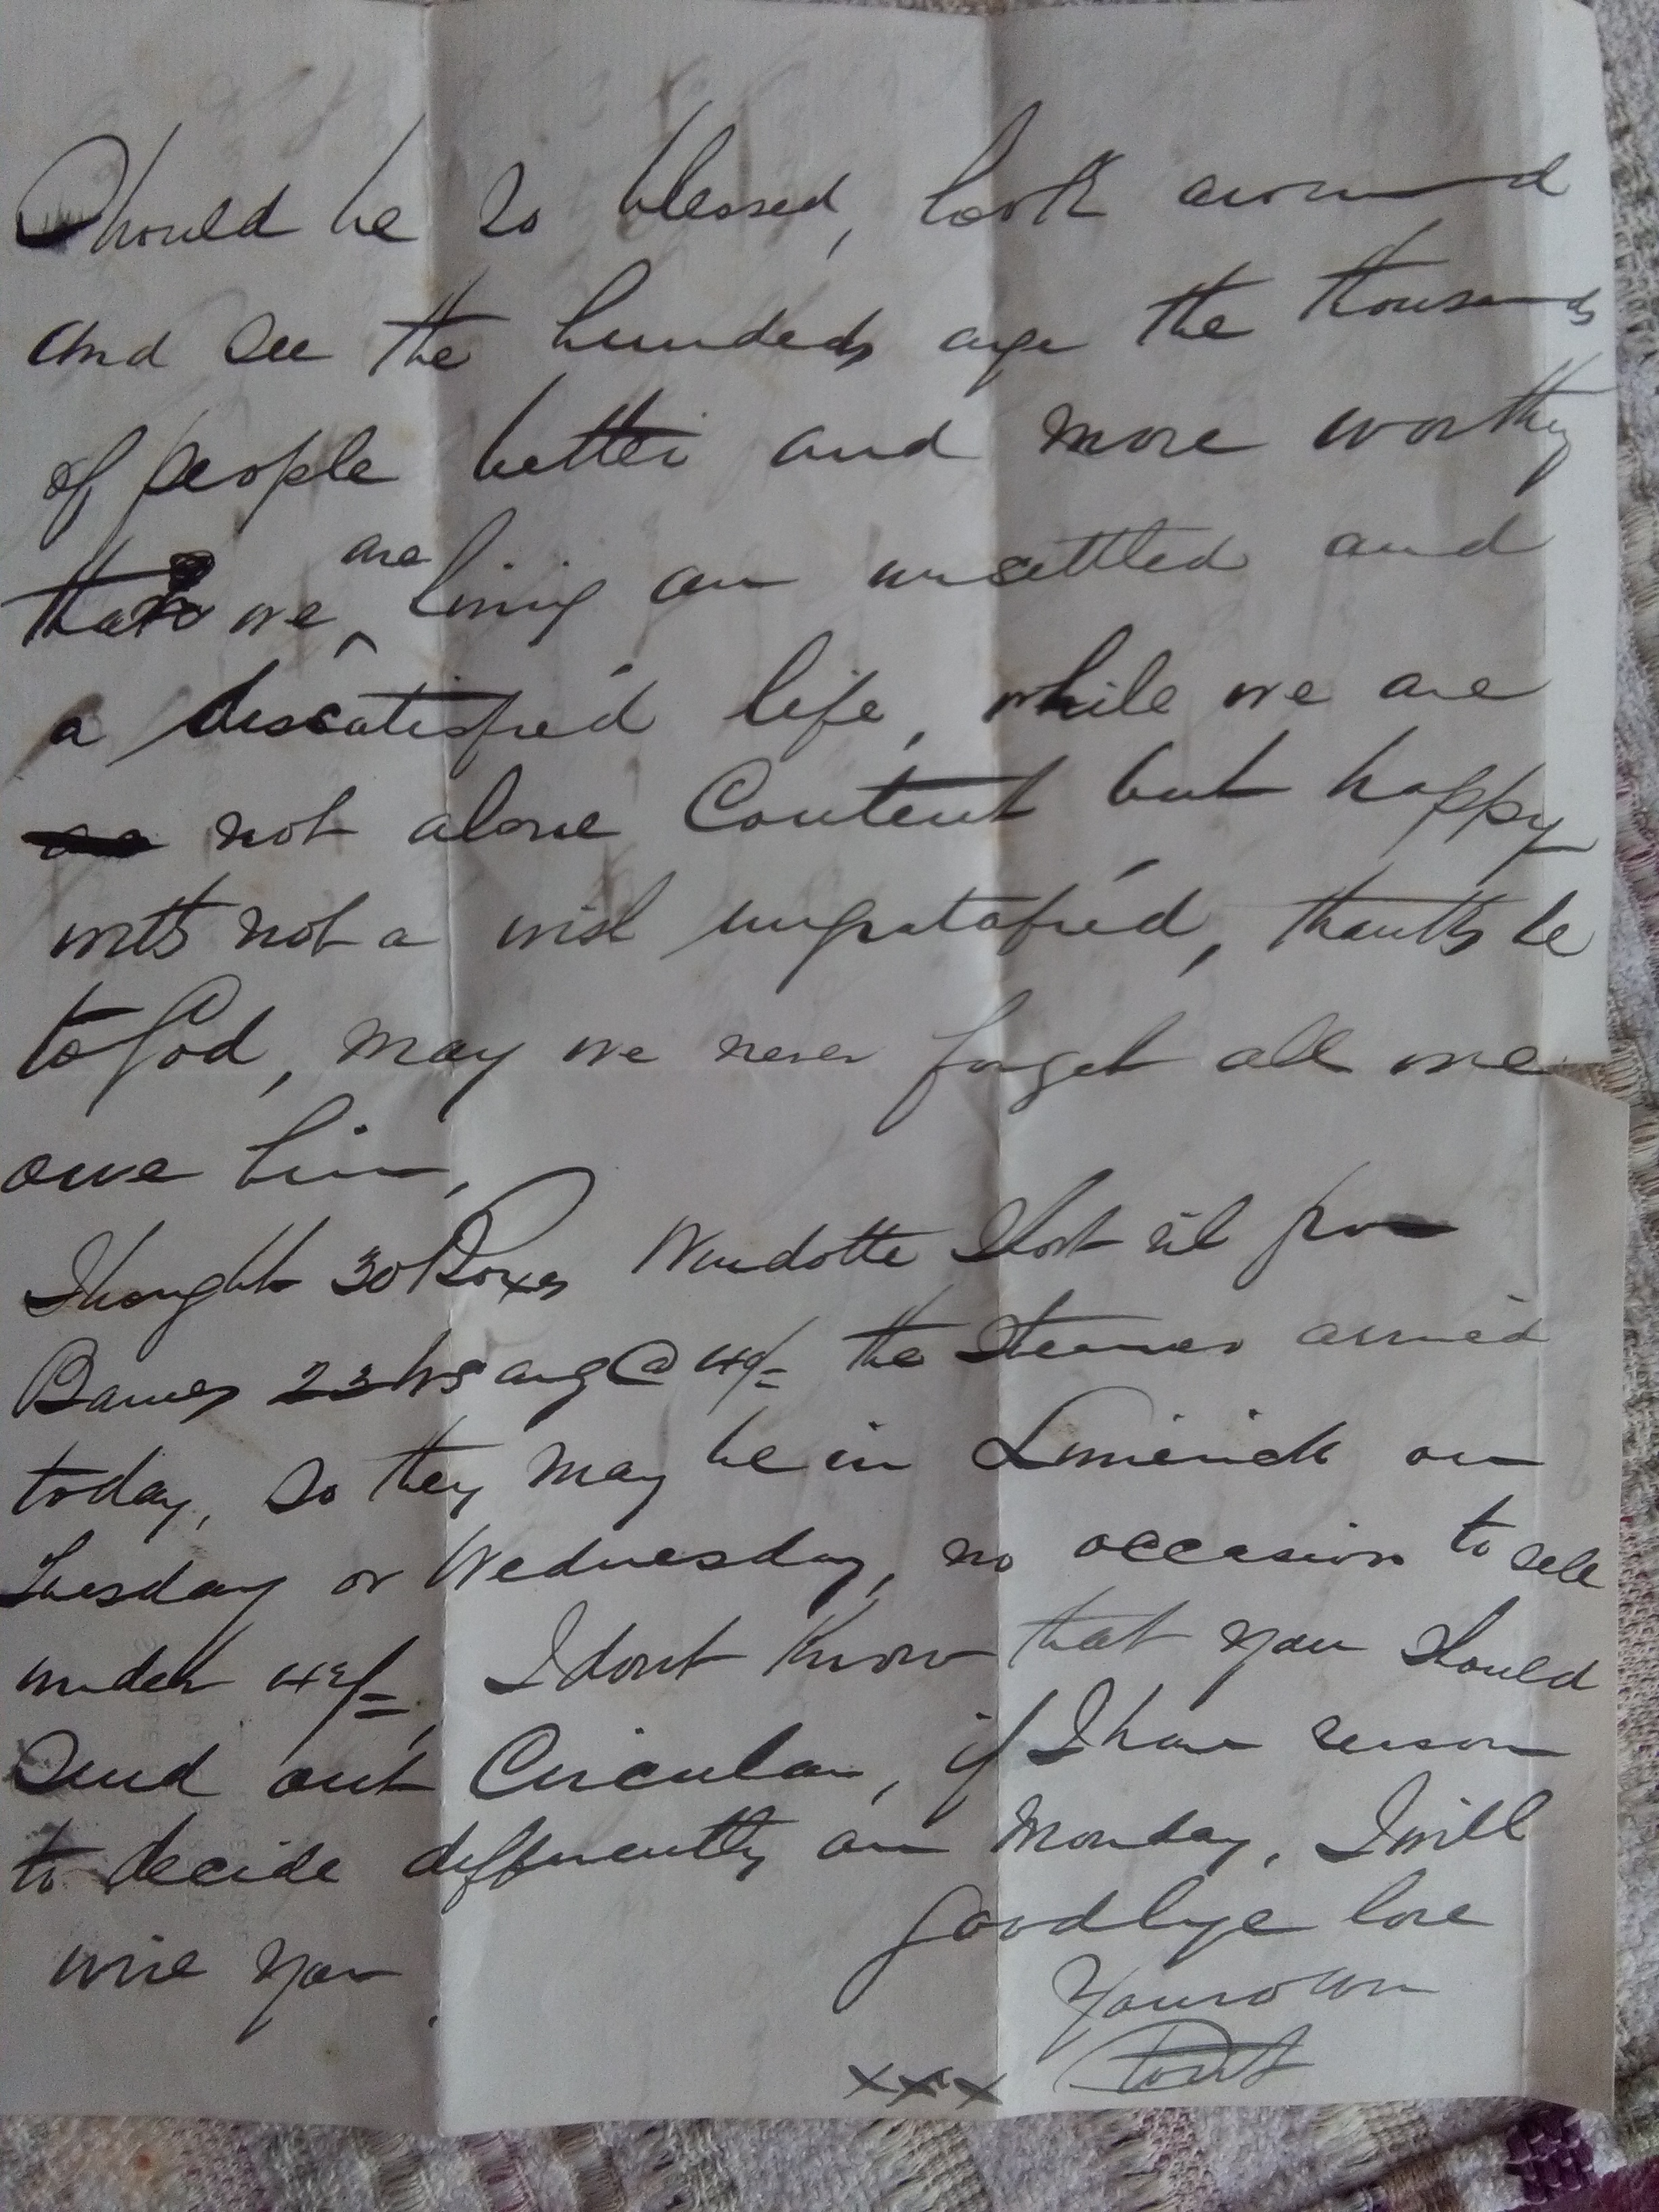 Should be so blessed, look around
and see the hundeds aye the thousands
of people better and more worthy
than we are living an unsettled and
a discatisfied life, while we are
not alone Content but happy
with not a wish ungratafied, thanks be
to God, may we never forget all we
owe him,
I bought 30 Boxes Short rib from
Barnes 23 lbs avg @ the Steamer arrived
today, so they may be in Limerick on
Tuesday or Wednesday, no occasion to sell
under I dont know that you should
Send out Circular, if I have reason
to decide differently on Monday, I will
wire you
goodbye love
Your own
xxx